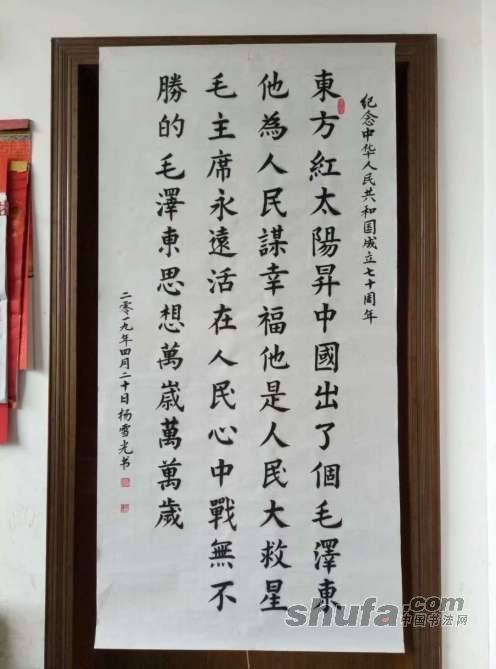 纪念中华人民共和国成立七十周年
東方紅太陽昇中國出了個毛澤東
他為人民謀幸福他是人民大救星
毛主席永遠活在人民心中戰無不
勝的毛澤東思想萬嵗萬萬歲
二零一九年四月二十日杨雪光书
shufa.com
中国书法网